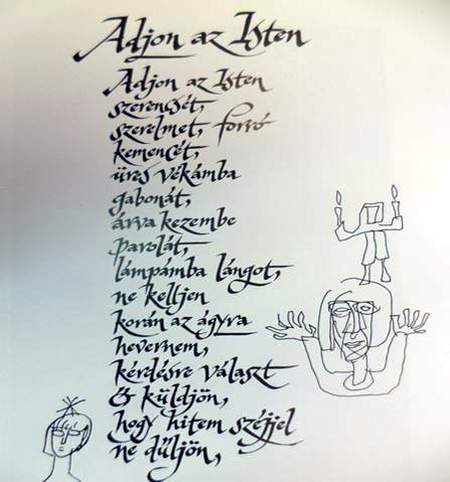 Adjon az Isten
Adjon az Isten
szerencsét,
szerelmet, forró
kemencét,
üres vékámba
gabonát,
árva kezembe
parolát,
lámpámba lángot,
ne kelljen
korán az ágyra
hevernem,
kérdésre választ
ő küldjön,
hogy hitem széjjel
ne dűljön,